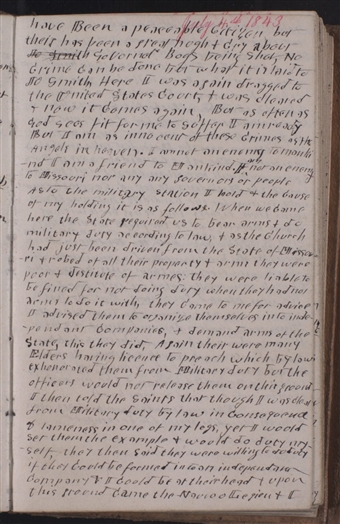 July 4th 1843
have Been a peaceable Citizen but
their has been a great heigh & Cry about
Governor Bogs being Shot No
Crime Can be done but what it is laid to
Jo Smith Here I was again dragged to
the United States Court & was cleared
& now it Comes again But as often as
God sees fit for me to suffer I am ready
But I am as innocent of these Crimes as the
Angels in heaven. I am not an enemy to mank
ind I am a friend to Mankind I am not an enemy
to Missouri nor any any governors or people
As to the military Station I hold & the Cause
of my holding it is as follows When we Came
here the State required us to bear arms & do
military duty according to law & as the Church
had just been driven from the State of Missou
ri & robed of all their property & arms they were
poor & destitute of arms they were liable to
be fined for not doing duty when they had not
arms to do it with, they Came to me for advice
I advised them to organize themselves into inde
pendant Companies, & demand arms of the
State, this they did. Again their were many
Elders having licence to preach which by law
exhonorated them from Military duty but the
officers would not release them on this ground
I then told the Saints that though I was clear
from Military duty by law in Consequence
of lameness in one of my legs, yet I would
set them the example & would do duty my
self, they then said they were willing to do duty
if they Could be formed into an independant
Company & I Could be at their head & upon
this ground Came the Nauvoo Legion & I